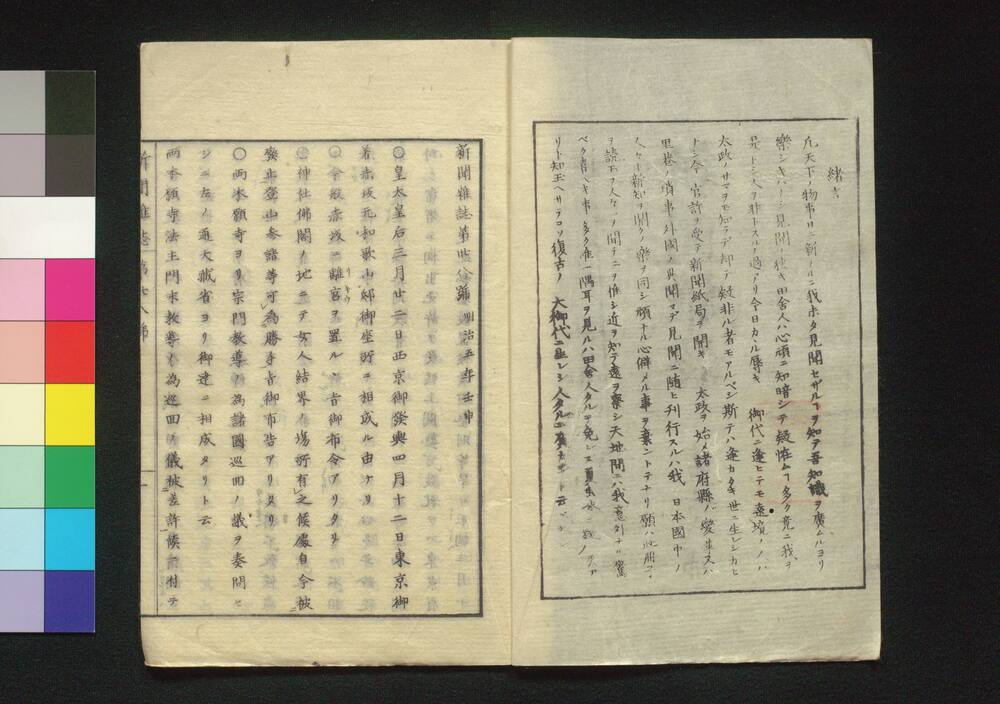 緒言
凡天下ノ物事日ニ新ナルニ我未タ見聞セザルヿヲ知テ吾知識ヲ廣ムルヨリ
樂シキハナシ見聞ノ狹キ田舎人ハ心頑ニ知暗シテ疑恠ムヿ多ク竟ニ我ヲ
是トシ人ヲ非トスルノ過アリ今日カヽル辱キ 御代ニ逢ヒテモ遠境ノ
太政ノサマヲモ知ラデ却テ疑非ル者モアルベシ斯テハ逢カタキ世ニ生レシカヒ
トシ今 官許ヲ受テ新聞紙局ヲ開キ 太政ヲ始メ諸府縣ノ變革又ハ
里巷ノ瑣事外國ノ異聞マデ見聞ニ隨ヒ刊行スルハ我 日本國中ノ
人々ト新知ヲ開クノ樂ヲ同シ頑ナル心僻メル事ヲ棄ントテナリ願ハ此册子
ヲ讀玉フ人々ヲ聞テニヲ惟シ近ヲ知テ遠ヲ察シ天地間ニハ我意外ナル驚
ベク喜ベキ事多ク唯一隅耳ヲ見ルハ田舎人タルヲ免レス
リト知玉ヘサテコソ復古ノ 大御代ニ生レシ人タルニ云
新聞雜誌第卅八號 明治五年壬申
○皇太皇后三月廿二日西京御發輿四月十二日東京御
着赤坂元和歌山邸御座所ニ相成ル由ナリ
○今般赤坂ニ離宮ヲ置ル丶旨御布令アリタリ
○神社佛閣ノ地ニテ女人結界ノ場所有之候處自今被
廢止登山參詣等可為勝手旨御布告アリタリ
○兩本願寺ヨリ宗門教導ノ為諸國巡回ノ儀ヲ奏問セ
シニ左ノ通大藏省ヨリ御達ニ相成タリト云
兩本願寺法主門末教導ノ為巡回ノ儀被差許候ニ付テ
新聞雜誌 第卅八號 一